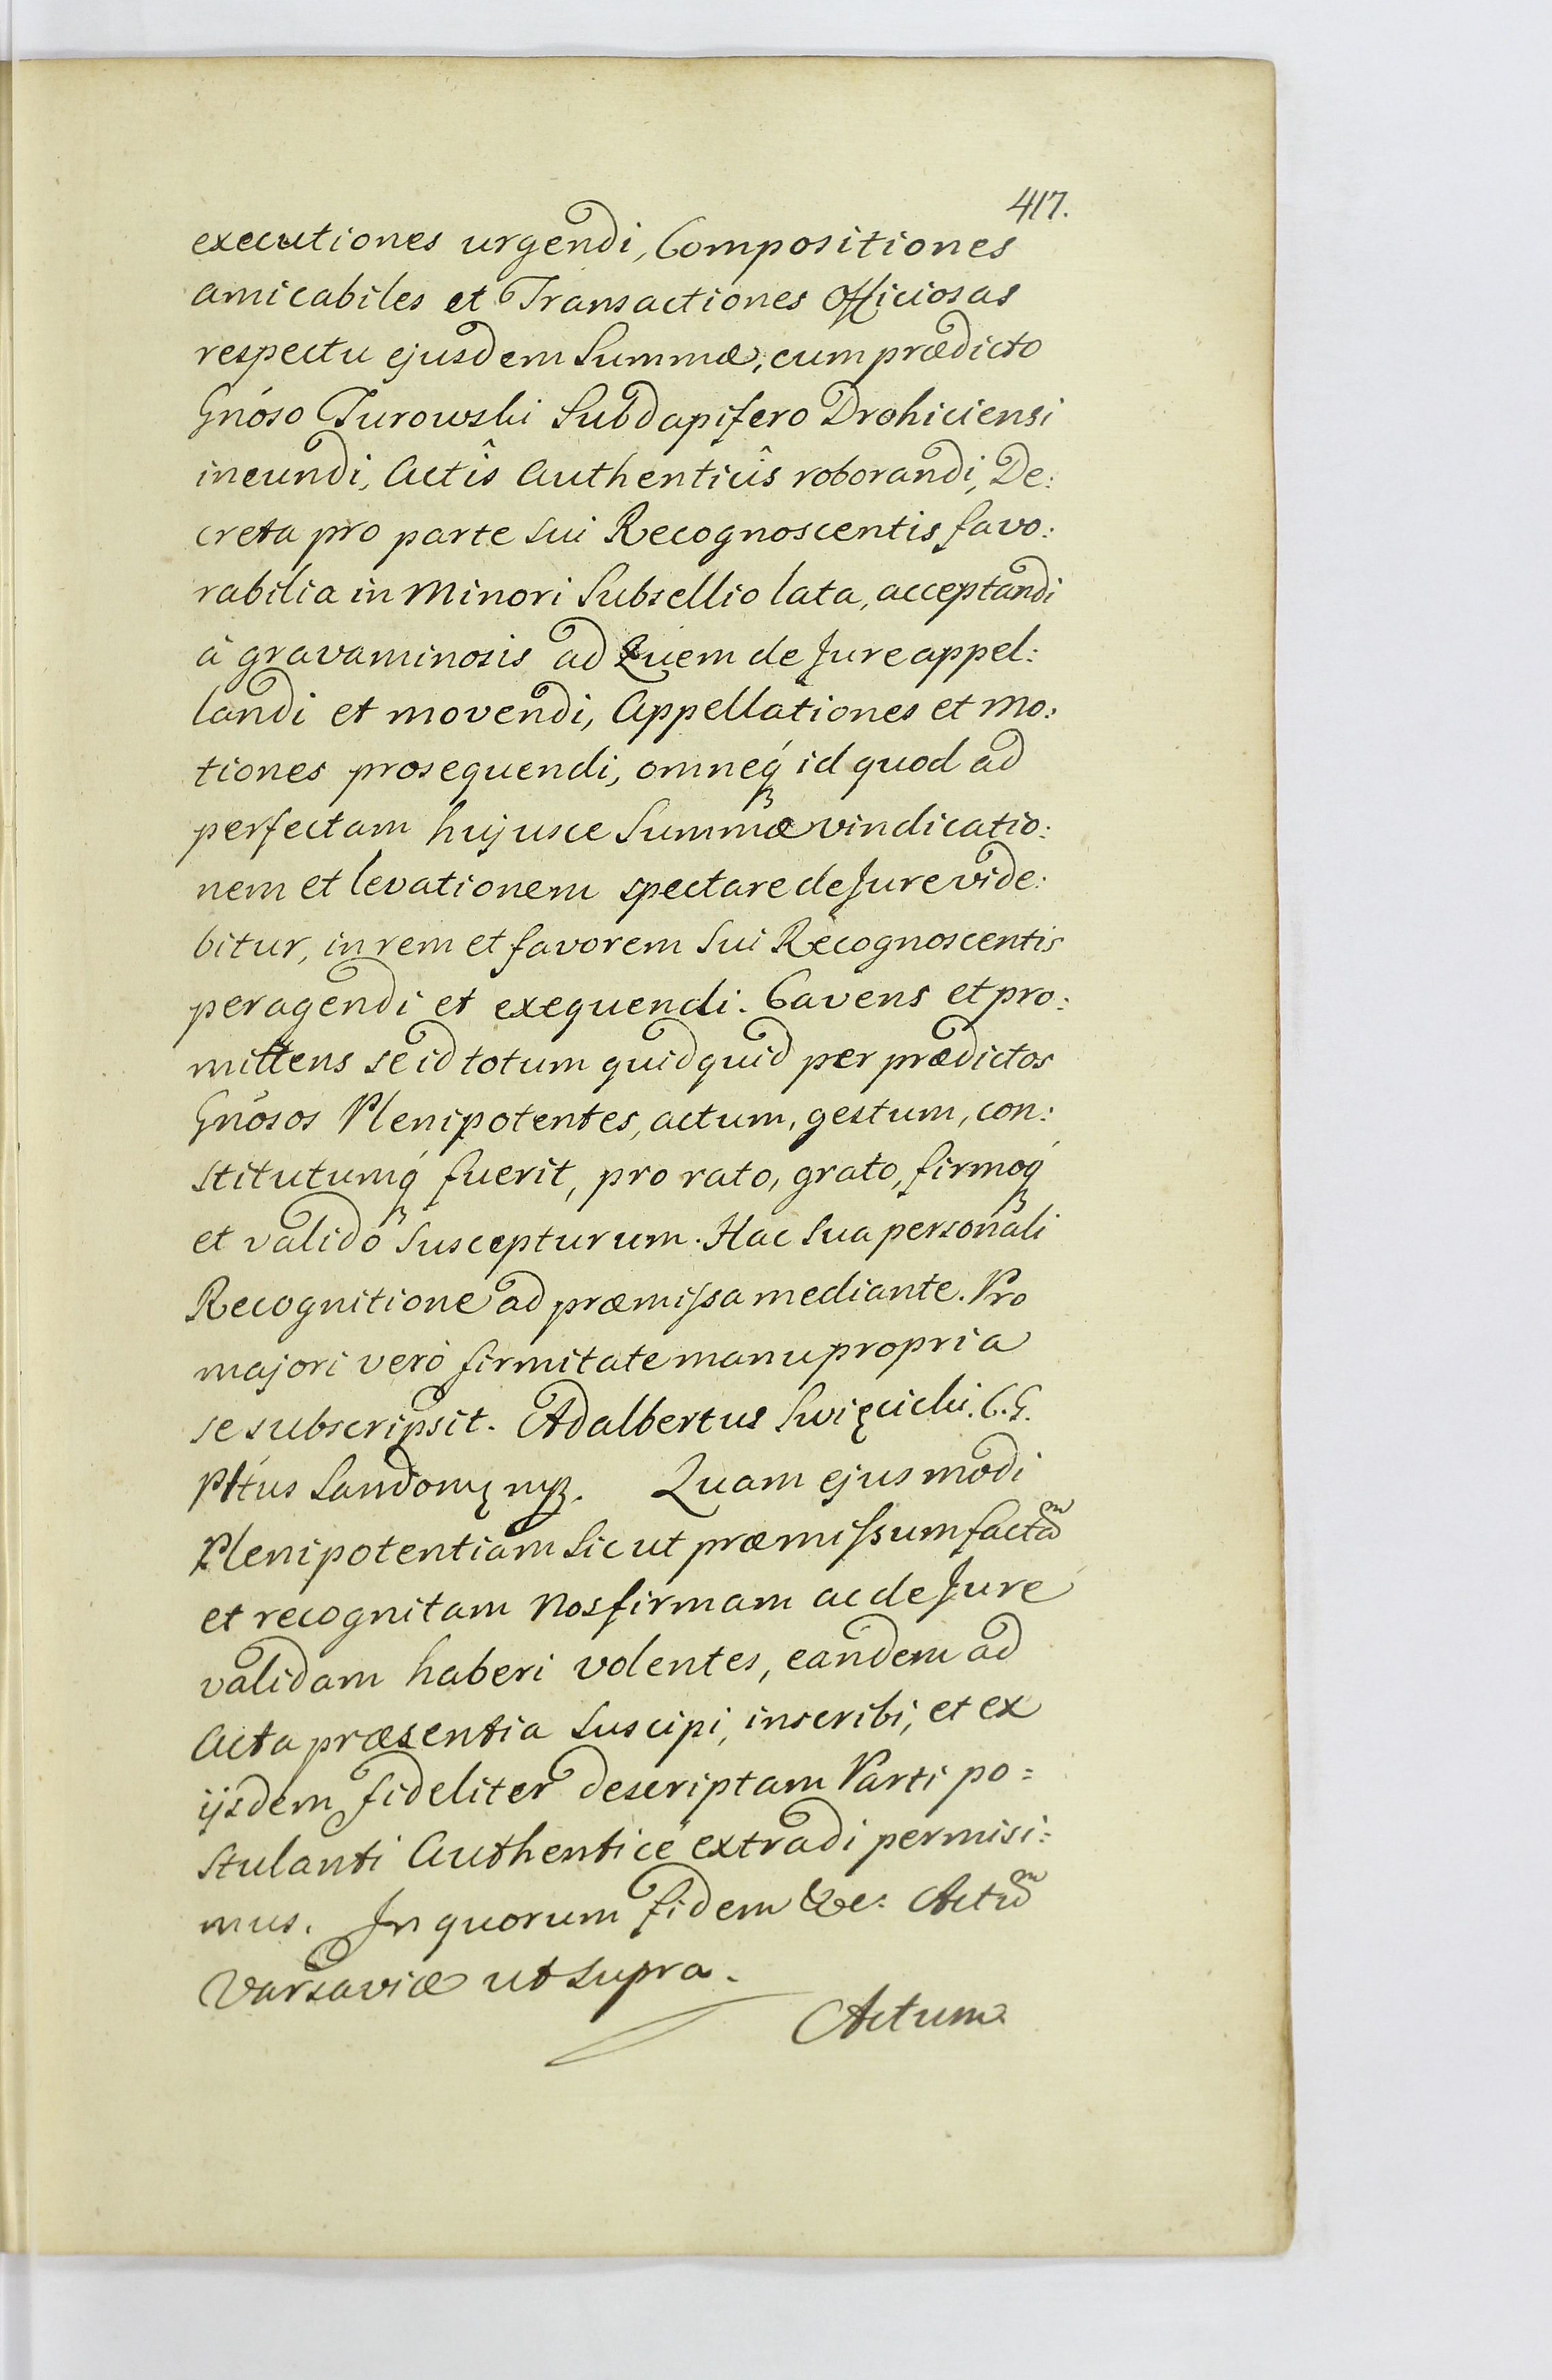 417.
executiones urgendi, Compositiones
amicabiles et Transactiones Officiosas
respectu ejusdem Summæ, cum prædicto
Gnoso Turowski Subdapifero Drohiciensi
ineundi, Actîs Authenticîs roborandi, De:
creta pro parte sui Recognoscentis favo:
rabilia in Minori Subsellio lata, acceptandi
â gravaminosis ad Quem de Jure appel:
landi et movendi, Appellationes et Mo:
tiones prosequendi, omneq́ id quod ad
perfectam hujusce Summæ vindicatio:
nem et levationem spectare de Jure vide:
bitur, in rem et favorem Sui Recognoscentis
peragendi et exequendi. Cavens et pro:
mittens se id totum quidquid per prædictos
Gnosos Plenipotentes, actum, gestum, con:
stitutumq́ fuerit, pro rato, grato, firmoq́
et valido Suscepturum. Hac Sua personali
Recognitione ad præmissa mediante. Pro
majori verò firmitate manu propria
se subscripsit. Adalbertus Swięcicki. C. G.
Pltus Sandom
Quam ejusmodi
Plenipotentiam Sicut præmissum factam
et recognitam Nos firmam ac de Jure
validam haberi volentes, eandem ad
Acta præsentia Suscipi, inscribi, et ex
ijsdem fideliter descriptam Parti po=
stulanti Authenticè extradi permisi=
mus. In quorum fidem &c: Actum
Varsaviæ ut Supra.
Actum